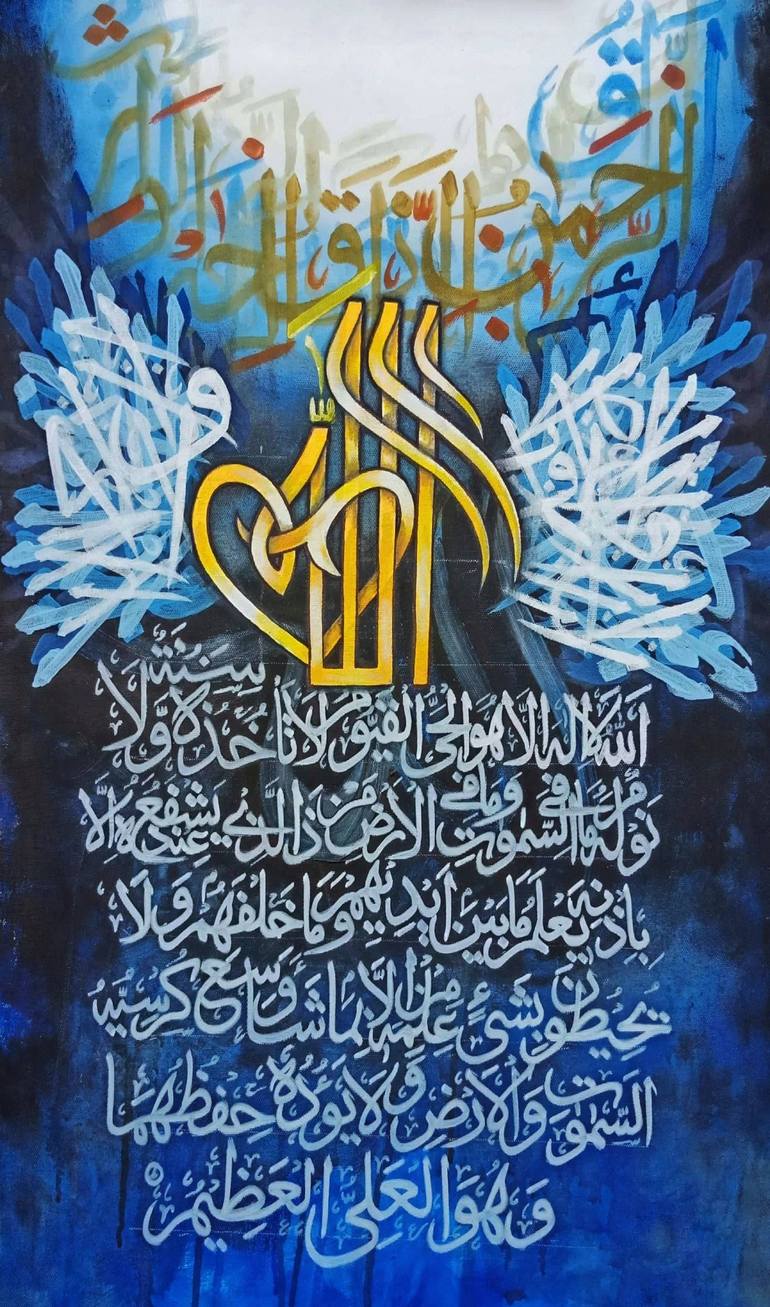 الرحمن الرزاق
الله
اَللهُ لَا اِلٰهَ اِلَّا هُوَ الْحَیُّ الْقَیُّوْمُ لَا تَاْخُذُهٗ سِنَةٌ وَّلَا
نَوْمٌ لَهٗ مَا فِی السَّمٰوٰتِ وَمَا فِی الْاَرْضِ مَنْ ذَا الَّذِیْ یَشْفَعُ عِنْدَهٗ اِلَّا
بِاِذْنِهٖ یَعْلَمُ مَا بَیْنَ اَیْدِیْهِمْ وَمَا خَلْفَهُمْ وَلَا
یُحِیْطُوْنَ بِشَیْءٍ مِّنْ عِلْمِهٖ اِلَّا بِمَا شَآءَ وَسِعَ كُرْسِیُّهُ
السَّمٰوٰتِ وَالْاَرْضَ وَلَا یَـُٔوْدُهٗ حِفْظُهُمَا
وَهُوَ الْعَلِیُّ الْعَظِیْمُ